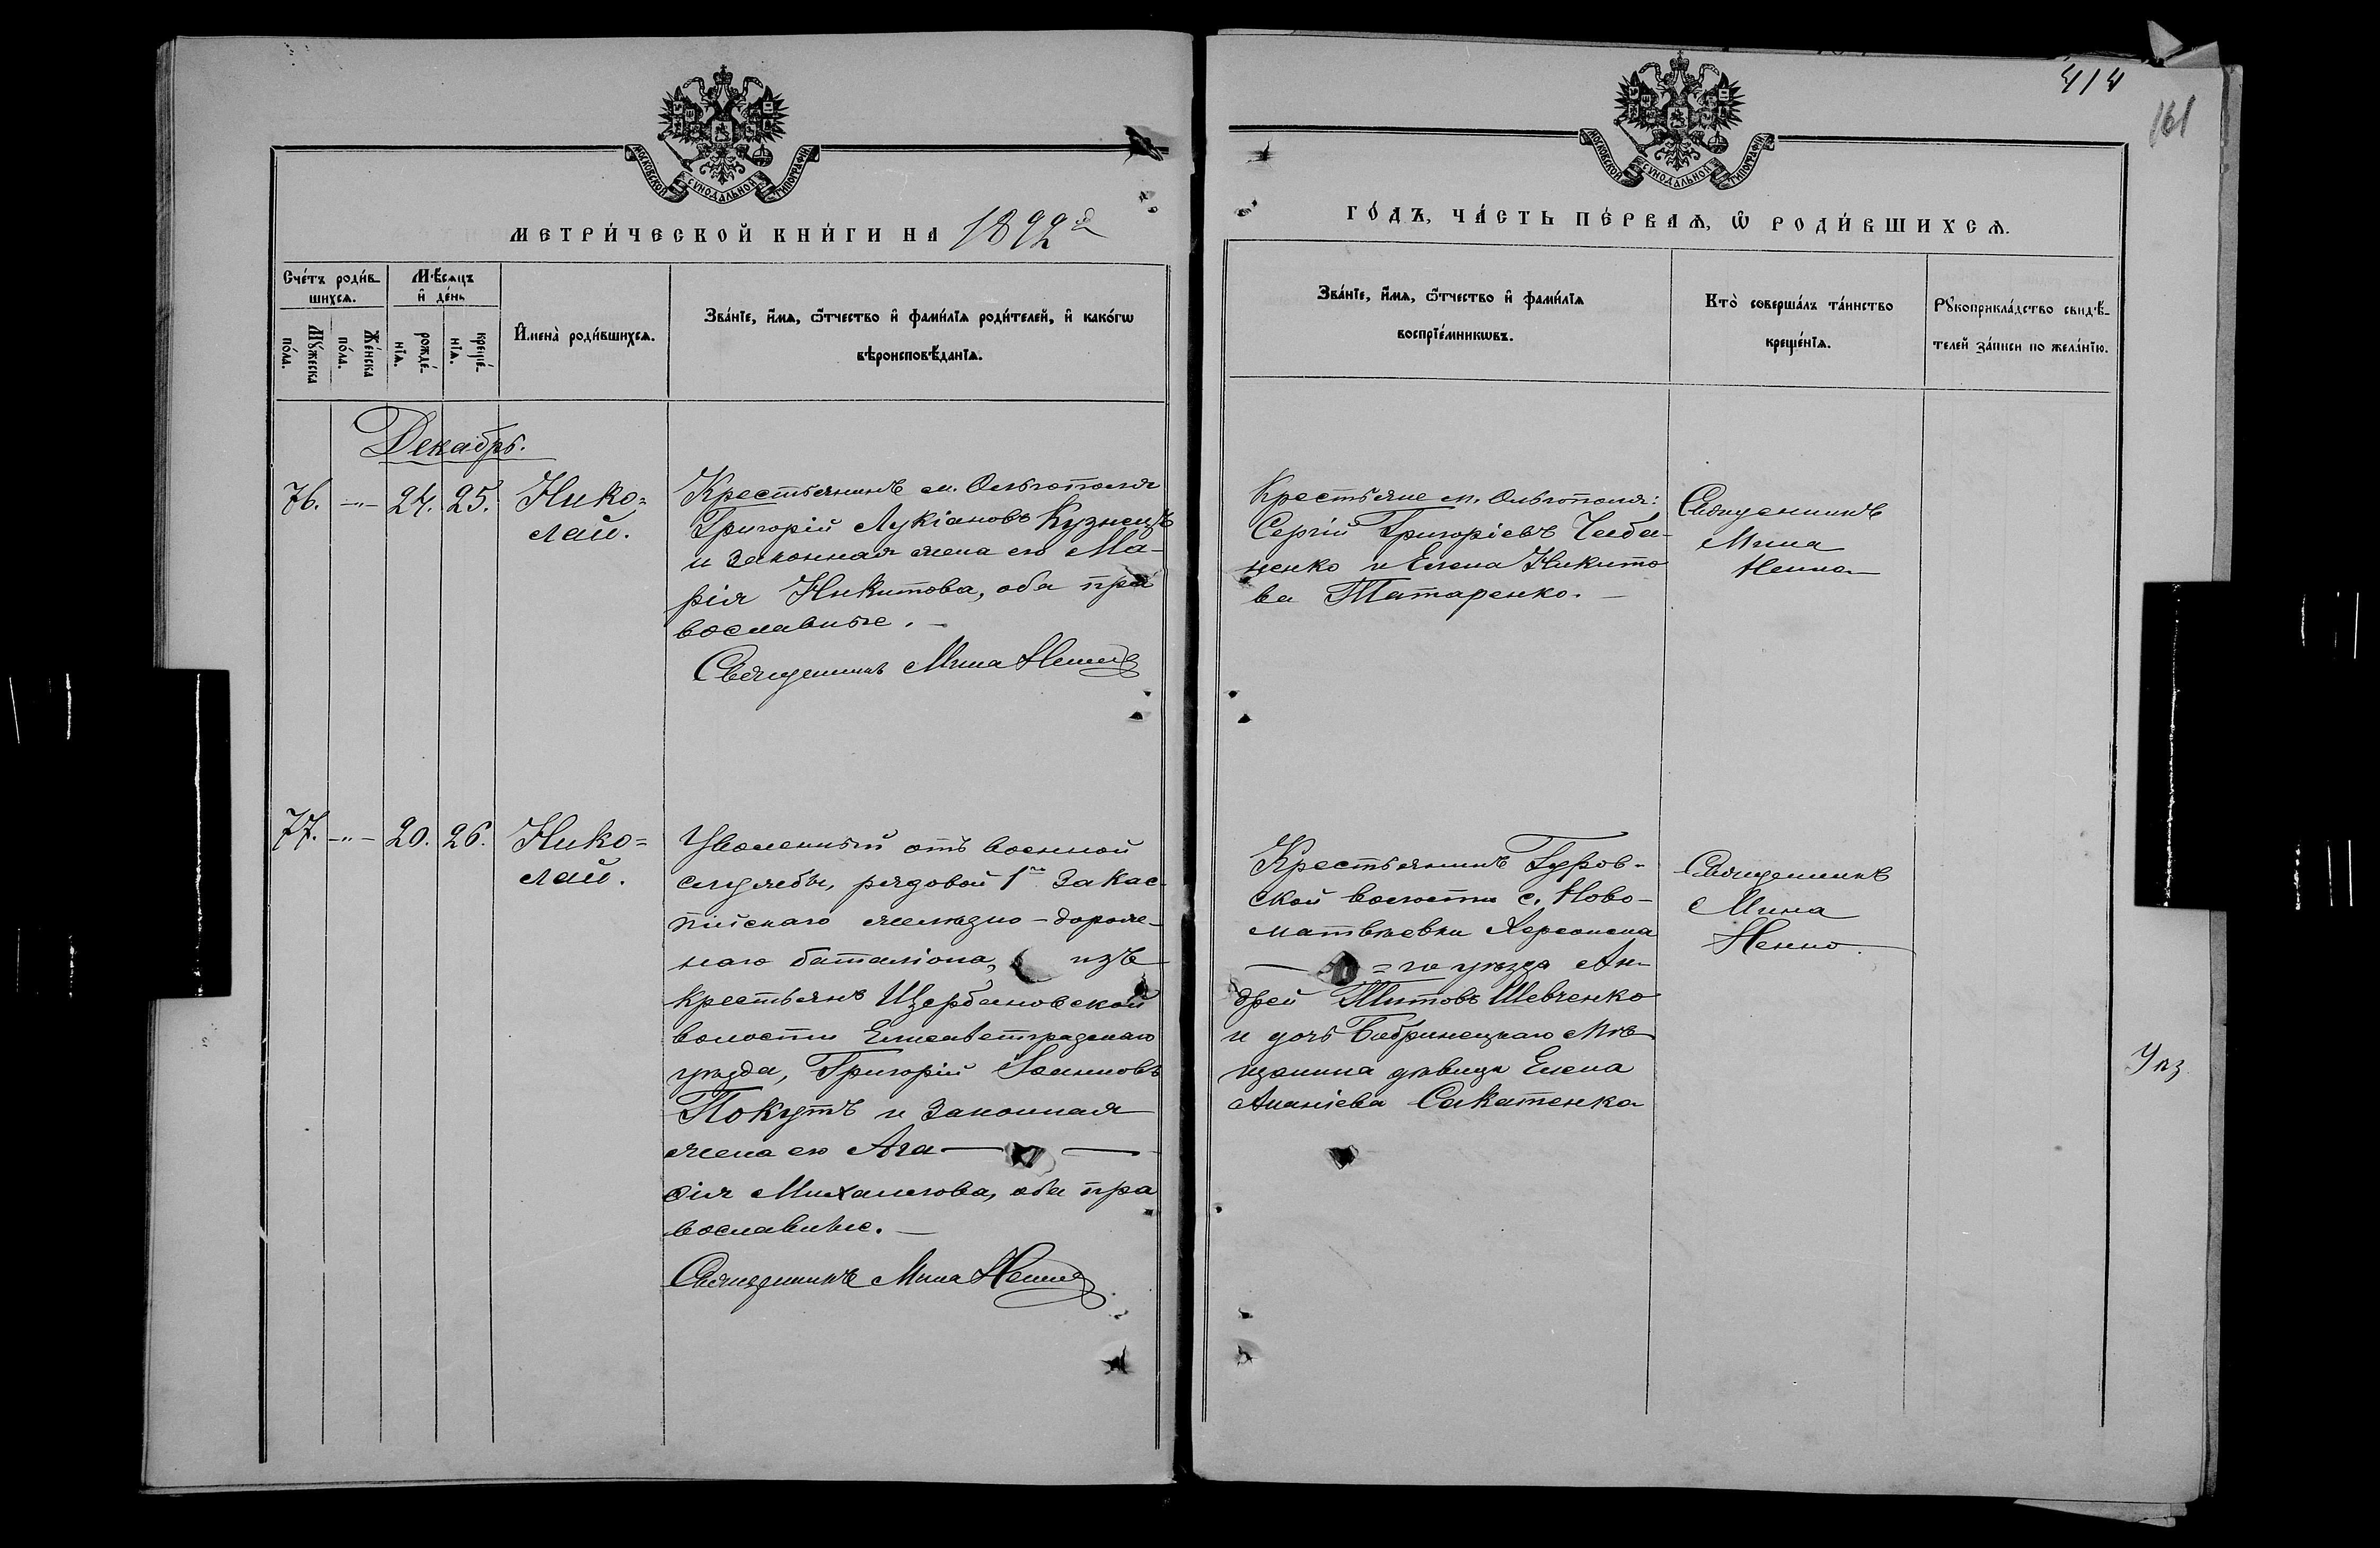 МОСКОВСКОЙ СѴНОДАЛЬНОЙ ТИПОГРАФІИ
МЕТРИ́ЧЕСКОЙ КНИ́ГИ НА 1892
Сче́тъ роди́в-
шихсѧ.
Мꙋжеска
по́ла.
Же́нска
по́ла.
Мѣ́сѧцъ
и҆ де́нь
рожде́-
нїѧ.
креще́-
нїѧ.
И҆мена̀ роди́вшихсѧ.
Зва́нїе, и҆́мѧ, ѻ҆́тчество и҆ фами́лїѧ роди́телей, и҆ како́гѡ
вѣроисповѣ́данїѧ.
Декабрь.
76. -"- 24. 25. Нико=
лай.
Крестьянинъ м. Ольгополя
Григорій Лукіановъ Кузнецъ
и законная жена его Ма-
рія Никитова, оба пра
вославные. -
Священникъ Мина Ненно
77. -"- 20. 26. Нико=
лай.
Уволенный отъ военной
службы, рядовой 1го Закас-
пійскаго желѣзно-дорож-
наго баталіона, изъ
крестьянъ Щербановской
волости Елисаветградскаго
уѣзда, Григорій Іоанновъ
Покутъ и законная
жена его Ага-
фія Михаилова, оба пра
вославные. -
Священникъ Мина Ненно
414
161
МОСКОВСКОЙ СѴНОДАЛЬНОЙ ТИПОГРАФІИ
ГО́ДЪ, ЧА́СТЬ ПЕ́РВАѦ, Ѡ҆ РОДИ́ВШИХСѦ.
Зва́нїе, и҆́мѧ, ѻ҆́тчество и҆ фами́лїѧ
воспрїе́мникѡвъ.
Кто̀ соверша́лъ та́инство
креще́нїѧ.
Рꙋкоприкла́дство свидѣ́-
телей за́писи по жела́нїю.
Крестьяне м. Ольгополя:
Сергій Григоріевъ Чеба-
ненко и Елена Никито
ва Татаренко. -
Священникъ
Мина
Ненно
Крестьянинъ Гуров-
ской волости с. Ново-
матвѣевки Херсонска
=го уѣзда Ан-
дрей Титовъ Шевченко
и дочь Бобринецкаго мѣ
щанина дѣвица Елена
Ананіева Сакатенко
Священникъ
Мина
Ненно